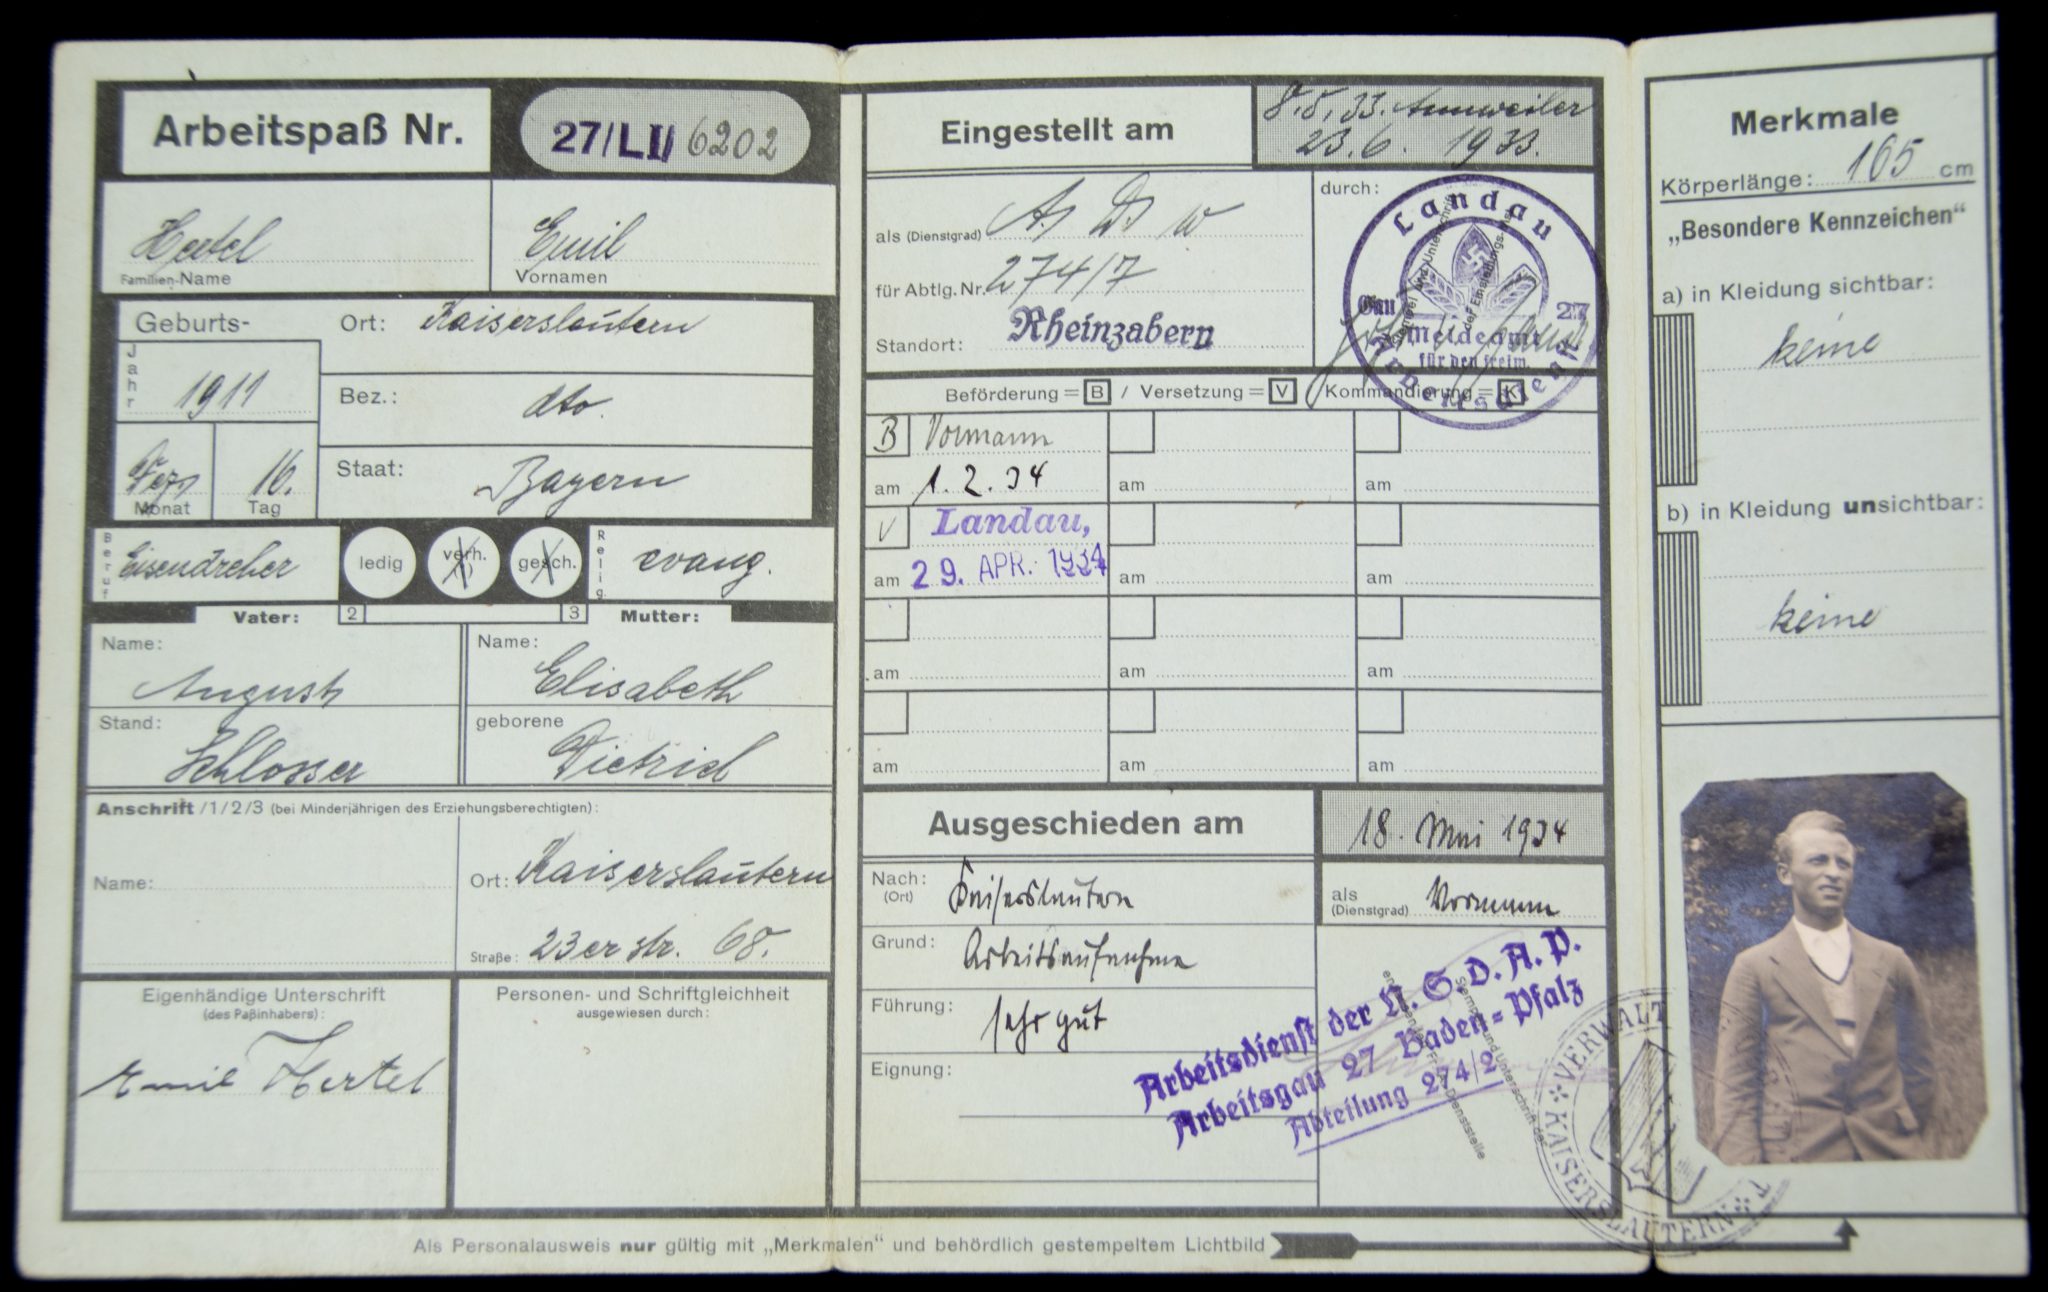 Arbeitspaß Nr. 27/LI/ 6202
Hertel Emil
Familien-Name Vornamen
Geburts-
Ort: Kaiserslautern
Jahr 1911
Bez.: dto.
Staat: Bayern
Dez. 16.
Monat Tag
Beruf Eisendreher
ledig verh. gesch.
Relig. evang.
Vater: 2 3 Mutter:
Name: August
Name: Elisabeth
Stand: Schlosser
geborene Dietrich
Anschrift /1/2/3 (bei Minderjährigen des Erziehungsberechtigten):
Name:
Ort: Kaiserslautern
Straße: 23er str. 68.
Eigenhändige Unterschrift
(des Paßinhabers):
Emil Hertel
Personen- und Schriftgleichheit
ausgewiesen durch:
Eingestellt am
8.5.33. Annweiler
23.6. 1933.
als (Dienstgrad) A. D. W
für Abtlg. Nr. 274/7
Standort: Rheinzabern
durch:
Landau
Gau 27
Meldeamt
für den freiw.
Arbeitsdienst
Beförderung = B / Versetzung = V / Kommandierung = K
B Vormann
am 1.2.34
V Landau,
am 29. APR. 1934
am am
am am
am am am
am am am
Ausgeschieden am 18. Mai 1934
Nach: (Ort) Kaiserslautern
als (Dienstgrad) Vormann
Grund: Arbeitsaufnahme
Führung: sehr gut
Eignung:
Arbeitsdienst der N.S.D.A.P.
Arbeitsgau 27 Baden-Pfalz
Abteilung 274/2
Merkmale
Körperlänge: 165 cm
„Besondere Kennzeichen“
a) in Kleidung sichtbar:
keine
b) in Kleidung unsichtbar:
keine
VERWALT
KAISERSLAUTERN
Als Personalausweis nur gültig mit „Merkmalen“ und behördlich gestempeltem Lichtbild